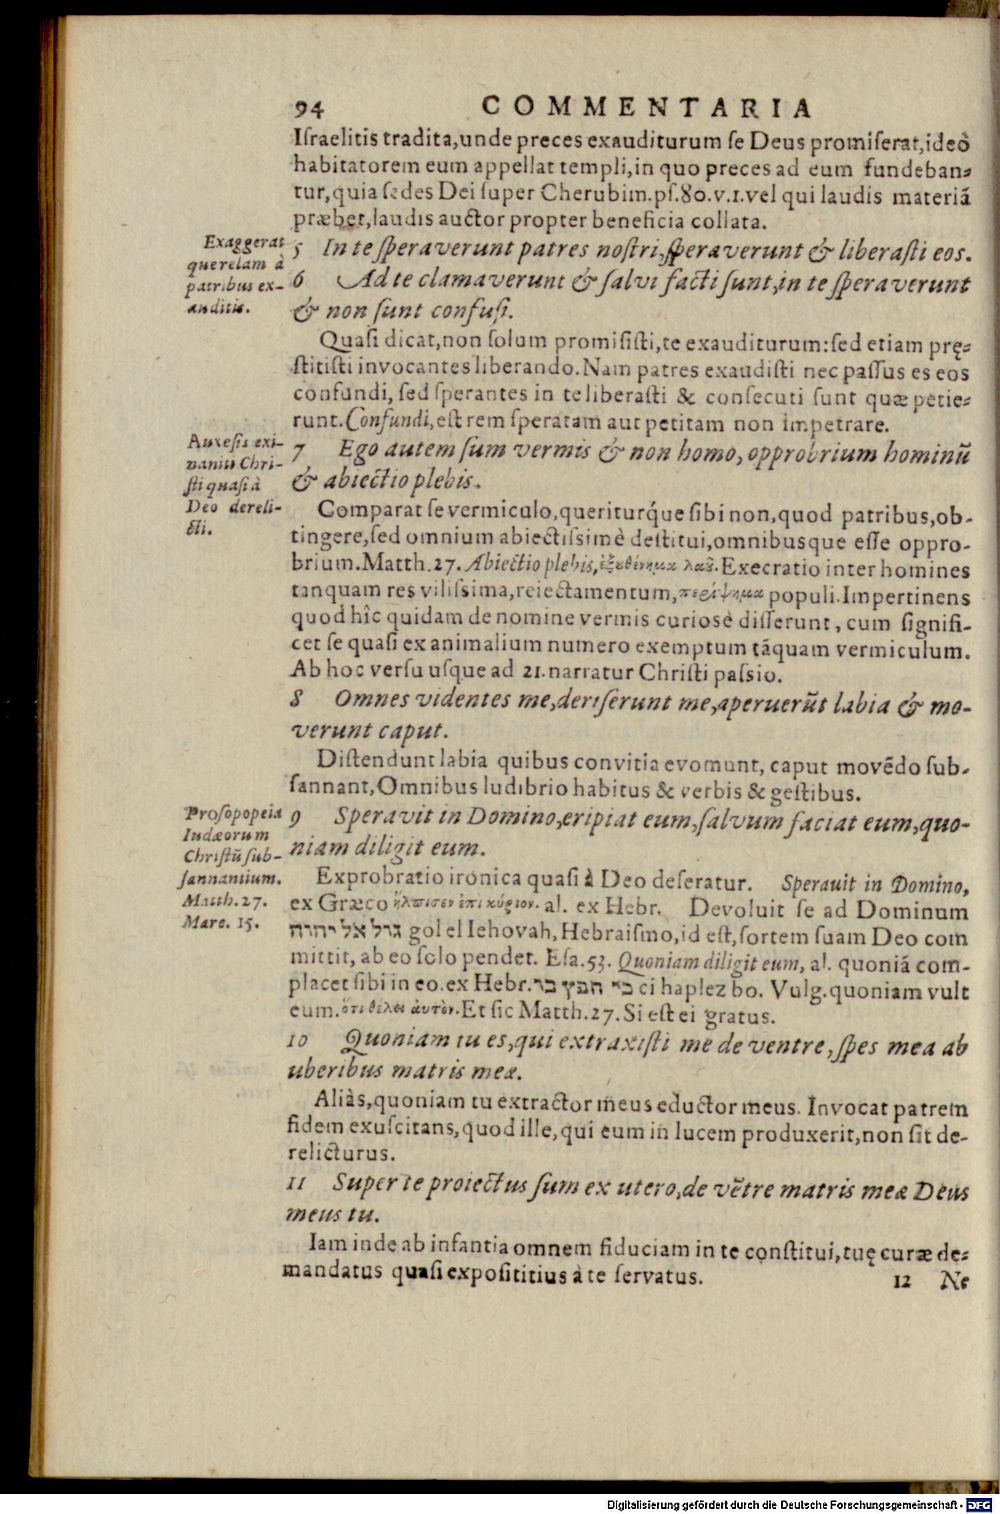 94 COMMENTARIA
Iſraelitis tradita,unde preces exauditurum ſe Deus promiſerat,ideò
habitatorem eum appellat templi,in quo preces ad eum fundeban-
tur,quia ſedes Dei ſuper Cherubim.pſ.80.v.1.vel qui laudis materiã
præbet,laudis auctor propter beneficia collata.
Exaggerat
querelam à
patribus ex-
auditis.
5 In te ſperaverunt patres noſtri,ſperaverunt & liberaſti eos.
6 Ad te clamaverunt & ſalvi facti ſunt,in te ſperaverunt
& non ſunt confuſi.
Quaſi dicat,non ſolum promiſiſti,te exauditurum:ſed etiam prę-
ſtitiſti invocantes liberando.Nam patres exaudiſti nec paſſus es eos
confundi, ſed ſperantes in te liberaſti & conſecuti ſunt quæ petie-
runt.Confundi,eſt rem ſperatam aut petitam non impetrare.
Auxeſis exi-
naniti Chri-
ſti quaſi à
Deo dereli-
cti.
7 Ego autem ſum vermis & non homo, opprobrium hominũ
& abiectio plebis.
Comparat ſe vermiculo,queriturq́ue ſibi non,quod patribus,ob-
tingere,ſed omnium abiectiſsimè deſtitui,omnibusque eſſe oppro-
brium.Matth.27.Abiectio plebis,ἐξουθένημα λαοῦ.Execratio inter homines
tanquam res viliſsima,reiectamentum,περίψημα populi.Impertinens
quod hîc quidam de nomine vermis curiosè diſſerunt, cum ſignifi-
cet ſe quaſi ex animalium numero exemptum tãquam vermiculum.
Ab hoc verſu uſque ad 21.narratur Chriſti paſsio.
8 Omnes videntes me,deriſerunt me,aperuerũt labia & mo-
verunt caput.
Diſtendunt labia quibus convitia evomunt, caput movẽdo ſub-
ſannant,Omnibus ludibrio habitus & verbis & geſtibus.
Proſopopeia
Iudæorum
Chriſtũ ſub-
ſannantium.
Matth. 27.
Marc. 15.
9 Speravit in Domino,eripiat eum,ſalvum faciat eum,quo-
niam diligit eum.
Exprobratio ironica quaſi à Deo deſeratur. Sperauit in Domino,
ex Græco ἤλπισεν ἐπὶ κύριον. al. ex Hebr. Devoluit ſe ad Dominum
גול אל יהוה gol el Iehovah, Hebraiſmo,id eſt,ſortem ſuam Deo com
mittit, ab eo ſolo pendet. Eſa.53. Quoniam diligit eum, al. quoniã com-
placet ſibi in eo.ex Hebr.כי חפץ בו ci haplez bo. Vulg.quoniam vult
eum.ὅτι θέλει αὐτόν.Et ſic Matth.27.Si eſt ei gratus.
10 Quoniam tu es,qui extraxiſti me de ventre, ſpes mea ab
uberibus matris meæ.
Aliàs,quoniam tu extractor meus eductor meus. Invocat patrem
fidem exuſcitans,quod ille,qui eum in lucem produxerit,non ſit de-
relicturus.
11 Super te proiectus ſum ex utero,de vẽtre matris meæ Deus
meus tu.
Iam inde ab infantia omnem fiduciam in te conſtitui,tuę curæ de-
mandatus quaſi expoſititius à te ſervatus.
12 Ne
Digitalisierung gefördert durch die Deutsche Forschungsgemeinschaft - DFG